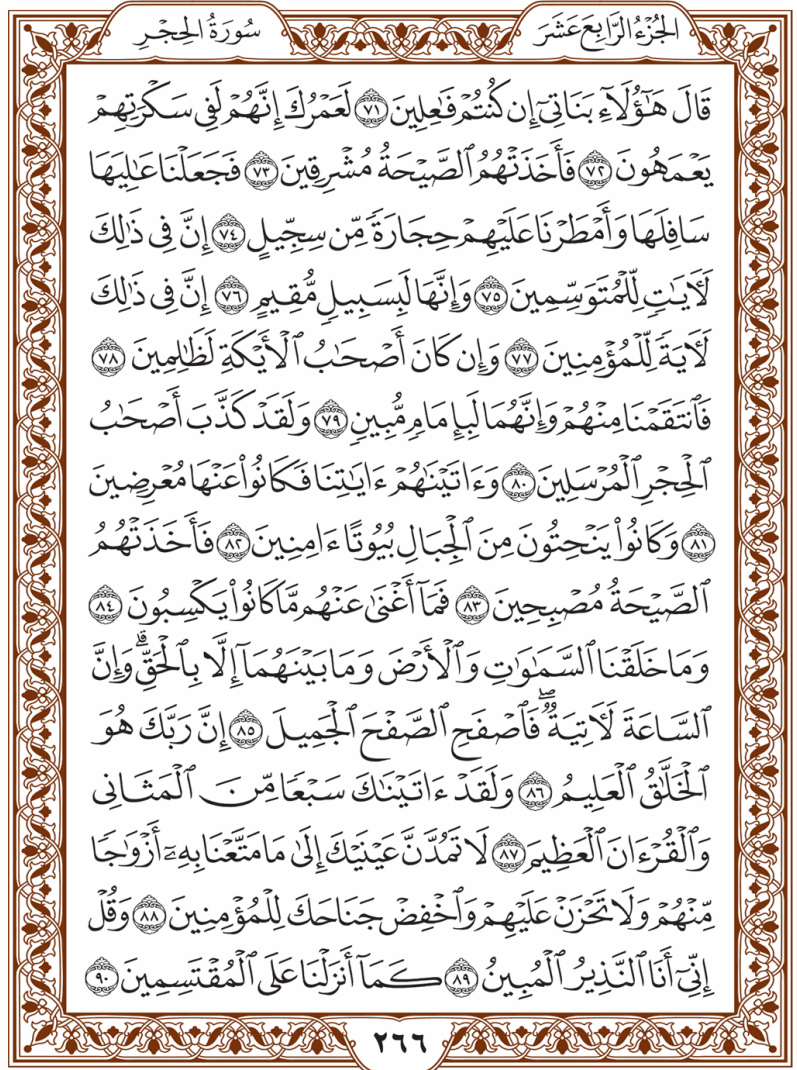 الجُزْءُ الرَّابِعَ عَشَرَ
سُورَةُ الحِجْرِ
قَالَ هَٰٓؤُلَآءِ بَنَاتِىٓ إِن كُنتُمْ فَٰعِلِينَ ٧١ لَعَمْرُكَ إِنَّهُمْ لَفِى سَكْرَتِهِمْ
يَعْمَهُونَ ٧٢ فَأَخَذَتْهُمُ ٱلصَّيْحَةُ مُشْرِقِينَ ٧٣ فَجَعَلْنَا عَٰلِيَهَا
سَافِلَهَا وَأَمْطَرْنَا عَلَيْهِمْ حِجَارَةً مِّن سِجِّيلٍ ٧٤ إِنَّ فِى ذَٰلِكَ
لَـَٔايَٰتٍ لِّلْمُتَوَسِّمِينَ ٧٥ وَإِنَّهَا لَبِسَبِيلٍ مُّقِيمٍ ٧٦ إِنَّ فِى ذَٰلِكَ
لَـَٔايَةً لِّلْمُؤْمِنِينَ ٧٧ وَإِن كَانَ أَصْحَٰبُ ٱلْأَيْكَةِ لَظَٰلِمِينَ ٧٨
فَٱنتَقَمْنَا مِنْهُمْ وَإِنَّهُمَا لَبِإِمَامٍ مُّبِينٍ ٧٩ وَلَقَدْ كَذَّبَ أَصْحَٰبُ
ٱلْحِجْرِ ٱلْمُرْسَلِينَ ٨٠ وَءَاتَيْنَٰهُمْ ءَايَٰتِنَا فَكَانُوا۟ عَنْهَا مُعْرِضِينَ
٨١ وَكَانُوا۟ يَنْحِتُونَ مِنَ ٱلْجِبَالِ بُيُوتًا ءَامِنِينَ ٨٢ فَأَخَذَتْهُمُ
ٱلصَّيْحَةُ مُصْبِحِينَ ٨٣ فَمَآ أَغْنَىٰ عَنْهُم مَّا كَانُوا۟ يَكْسِبُونَ ٨٤
وَمَا خَلَقْنَا ٱلسَّمَٰوَٰتِ وَٱلْأَرْضَ وَمَا بَيْنَهُمَآ إِلَّا بِٱلْحَقِّ ۗ وَإِنَّ
ٱلسَّاعَةَ لَـَٔاتِيَةٌ ۖ فَٱصْفَحِ ٱلصَّفْحَ ٱلْجَمِيلَ ٨٥ إِنَّ رَبَّكَ هُوَ
ٱلْخَلَّٰقُ ٱلْعَلِيمُ ٨٦ وَلَقَدْ ءَاتَيْنَٰكَ سَبْعًا مِّنَ ٱلْمَثَانِى
وَٱلْقُرْءَانَ ٱلْعَظِيمَ ٨٧ لَا تَمُدَّنَّ عَيْنَيْكَ إِلَىٰ مَا مَتَّعْنَا بِهِۦٓ أَزْوَٰجًا
مِّنْهُمْ وَلَا تَحْزَنْ عَلَيْهِمْ وَٱخْفِضْ جَنَاحَكَ لِلْمُؤْمِنِينَ ٨٨ وَقُلْ
إِنِّىٓ أَنَا ٱلنَّذِيرُ ٱلْمُبِينُ ٨٩ كَمَآ أَنزَلْنَا عَلَى ٱلْمُقْتَسِمِينَ ٩٠
٢٦٦